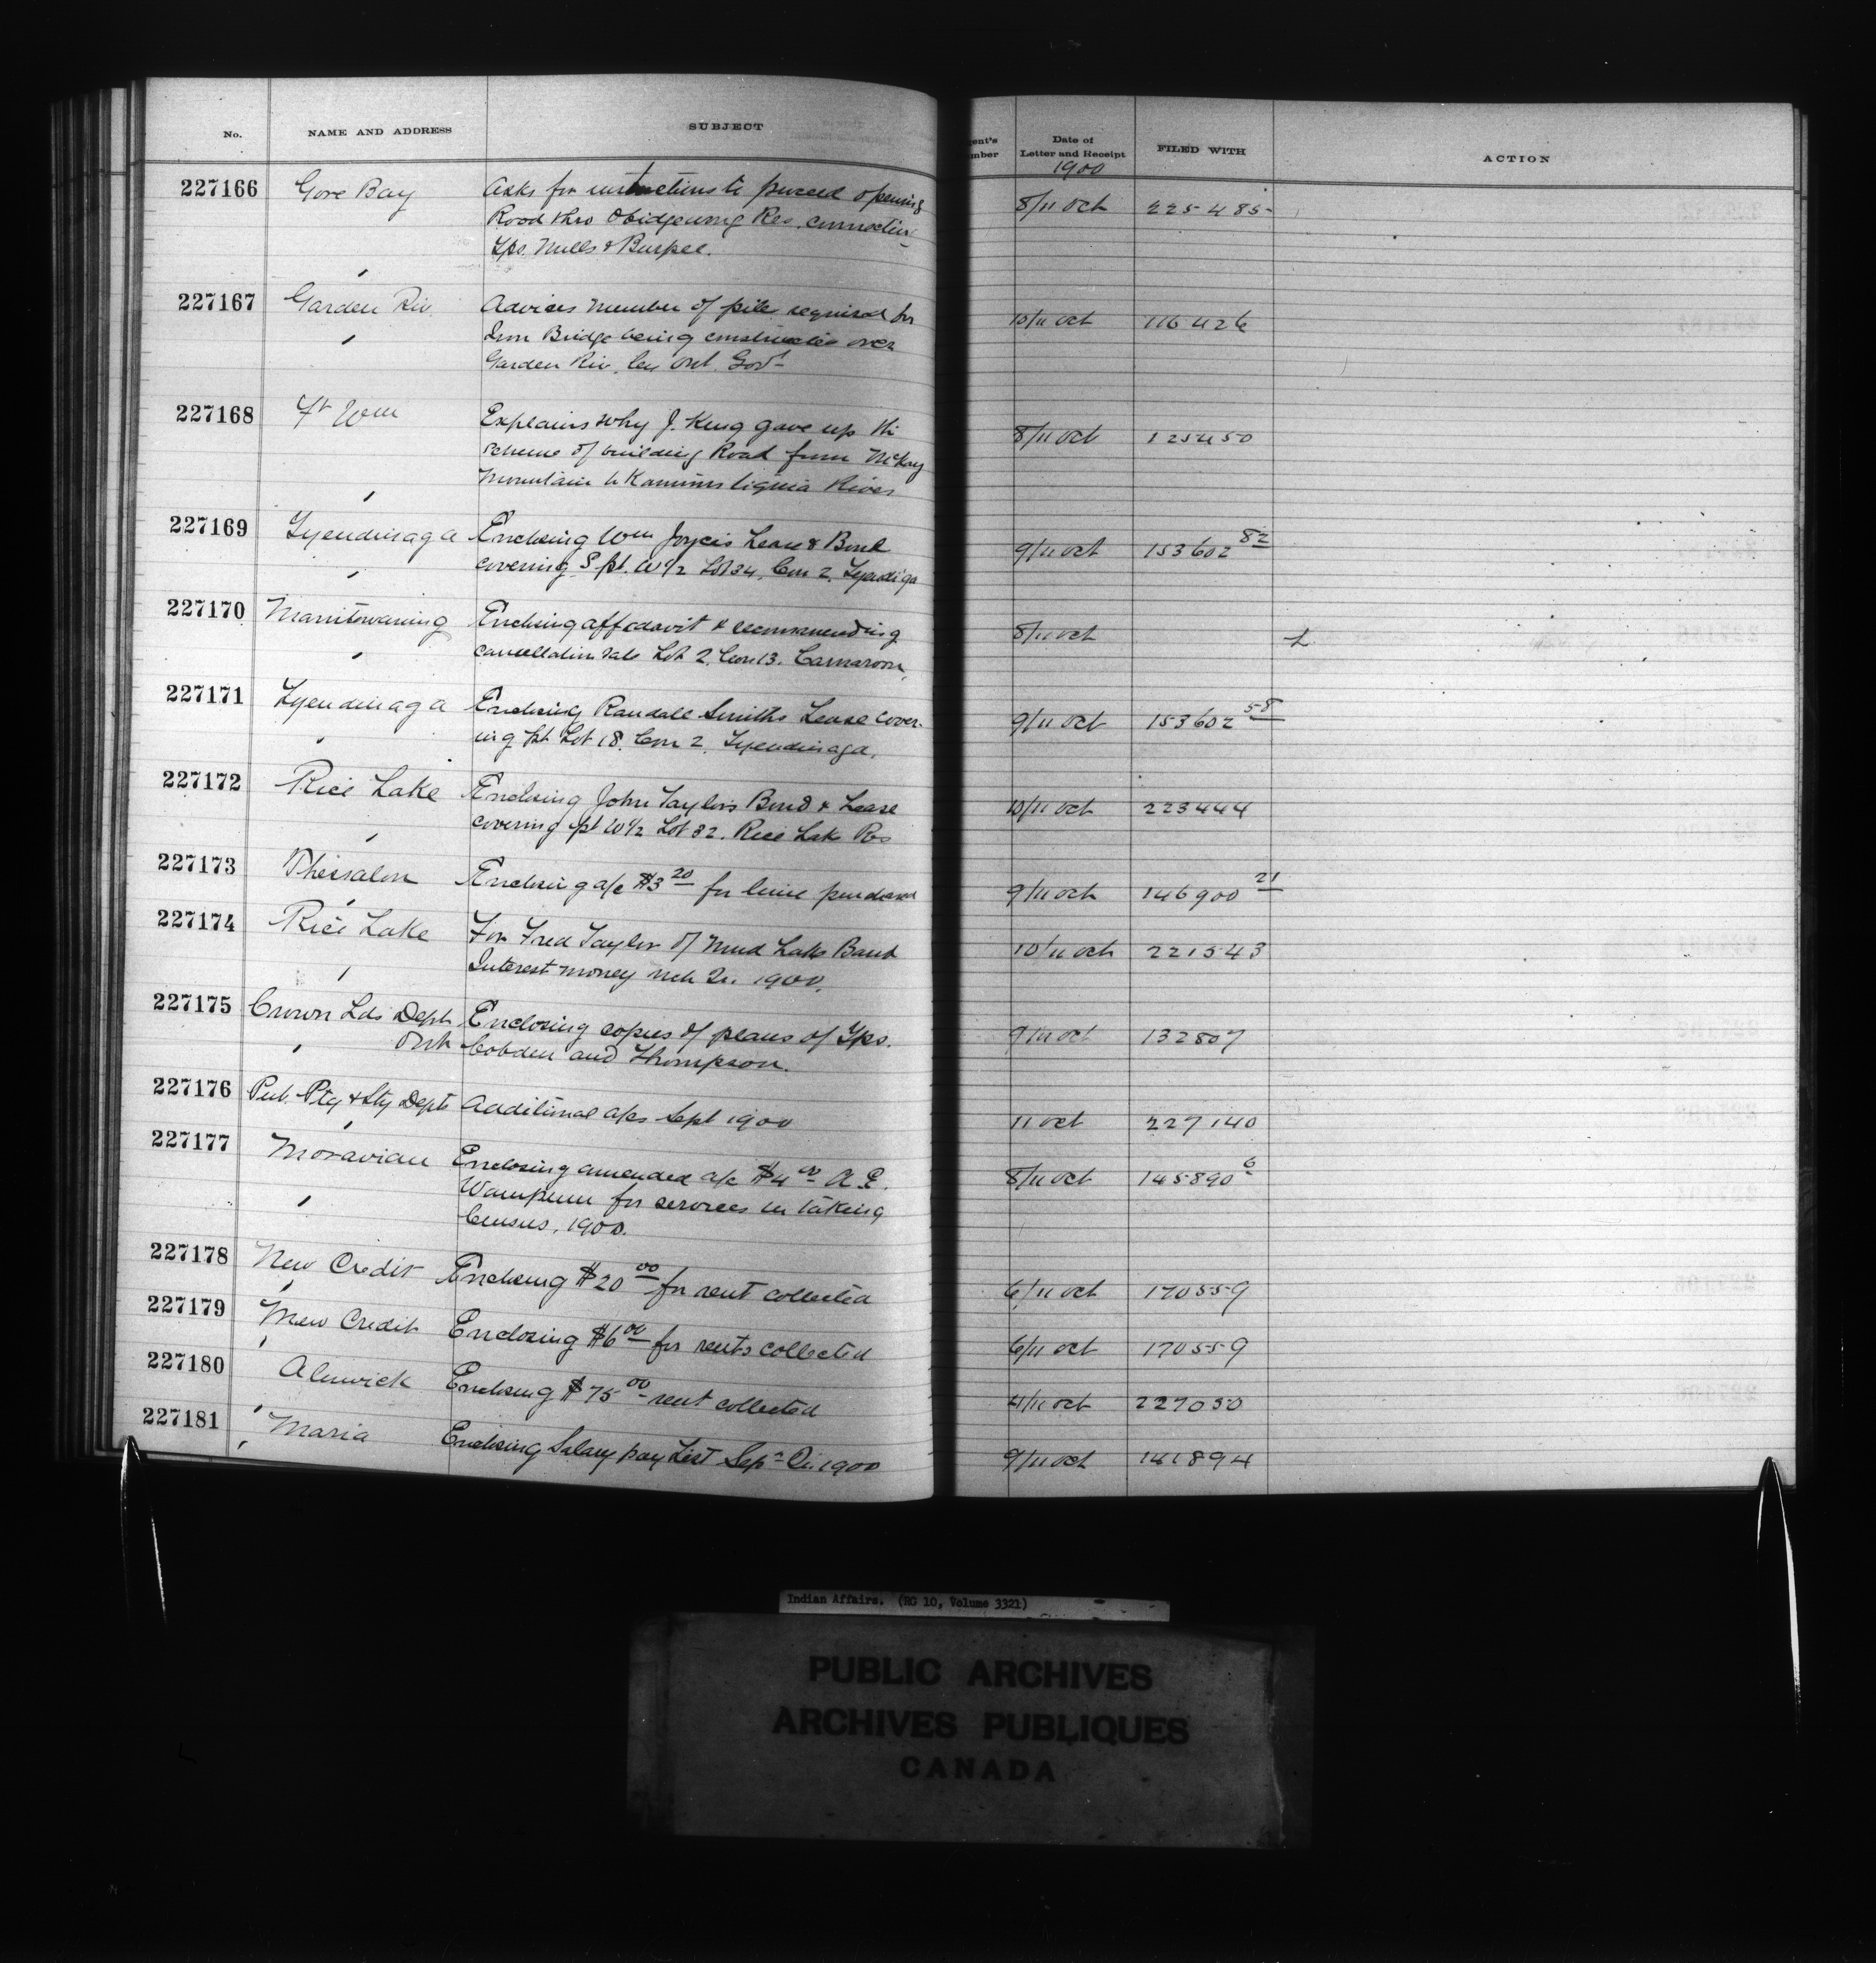 No. NAME AND ADDRESS SUBJECT Agent's Number Date of Letter and Receipt FILED WITH ACTION
1900
227166 Gore Bay Asks for instructions to proceed opening 8/11 Oct 225485
Road thro Obidgewong Res. connecting
Tps. Mills & Burpee.
227167 Garden Riv. Advises number of pile required for 10/11 Oct 116426
Iron Bridge being constructed over
Garden Riv. by Ont. Govt
227168 Ft Wm Explains why J. King gave up the 8/11 Oct 125450
scheme of building Road from McKay
Mountain to Kaministiquia River
227169 Tyendinaga Enclosing Wm Joyce's Lease & Bond 9/11 Oct 153602 82
covering S pt. W 1/2 Lot 34, Con 2, Tyendiga
227170 Manitowaning Enclosing affidavit & recommending 8/11 Oct L
cancellation sale Lot 2. Con 13. Carnarvon,
227171 Tyendinaga Enclosing Randall Smiths Lease cover- 9/11 Oct 153602 58
ing pt Lot 18. Con 2. Tyendinaga,
227172 Rice Lake Enclosing John Taylor's Bond & Lease 10/11 Oct 223444
covering pt W 1/2 Lot 32. Rice Lake Res
227173 Thessalon Enclosing a/c $3 20 for lime purchased 9/11 Oct 146900 21
227174 Rice Lake For Fred Taylor of Mud Lake Band 10/11 Oct 221543
Interest money Mch Qr. 1900.
227175 Crown Lds Dept Enclosing copies of plans of Tps. 9/11 Oct 132807
Ont Cobden and Thompson.
227176 Pub. Ptg & Sty Dept Additional a/cs Sept 1900 11 Oct 227140
227177 Moravian Enclosing amended a/c $4 00 A E. 8/11 Oct 145890 6
Wampum for services in taking
Census, 1900.
227178 New Credit Enclosing $20 00 for rent collected 6/11 Oct 170559
227179 New Credit Enclosing $6 00 for rents collected 6/11 Oct 170559
227180 Alnwick Enclosing $75 00 rent collected 4/11 Oct 227050
227181 Maria Enclosing Salary pay List Sep Qr. 1900 9/11 Oct 141894
Indian Affairs. (RG 10, Volume 3321)
PUBLIC ARCHIVES
ARCHIVES PUBLIQUES
CANADA